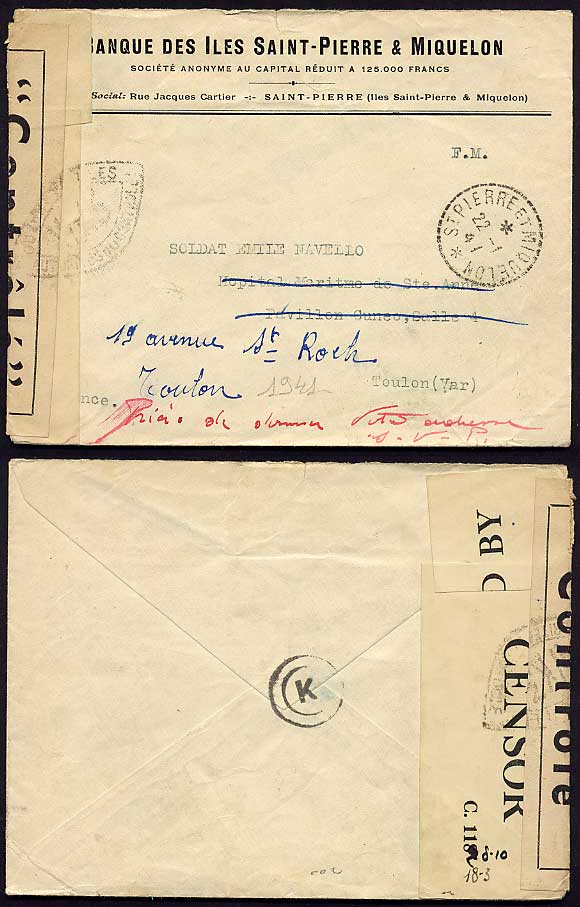 BANQUE DES ILES SAINT-PIERRE & MIQUELON
SOCIÉTÉ ANONYME AU CAPITAL RÉDUIT A 125.000 FRANCS
Social: Rue Jacques Cartier -:- SAINT-PIERRE (Iles Saint-Pierre & Miquelon)
"Contrôlé"
F.M.
ST PIERRE ET MIQUELON
22-1
41
SOLDAT EMILE NAVELLO
Hopital Maritme de Ste.Anne
Pavillon Cuneo,Salle 4
19 avenue St Roch
Toulon 1941
Toulon(Var)
nce.
Prière de donner votre adresse
S. V. P.
K
BY
CENSOR
C. 118
18-3
8-10
Contrôlé